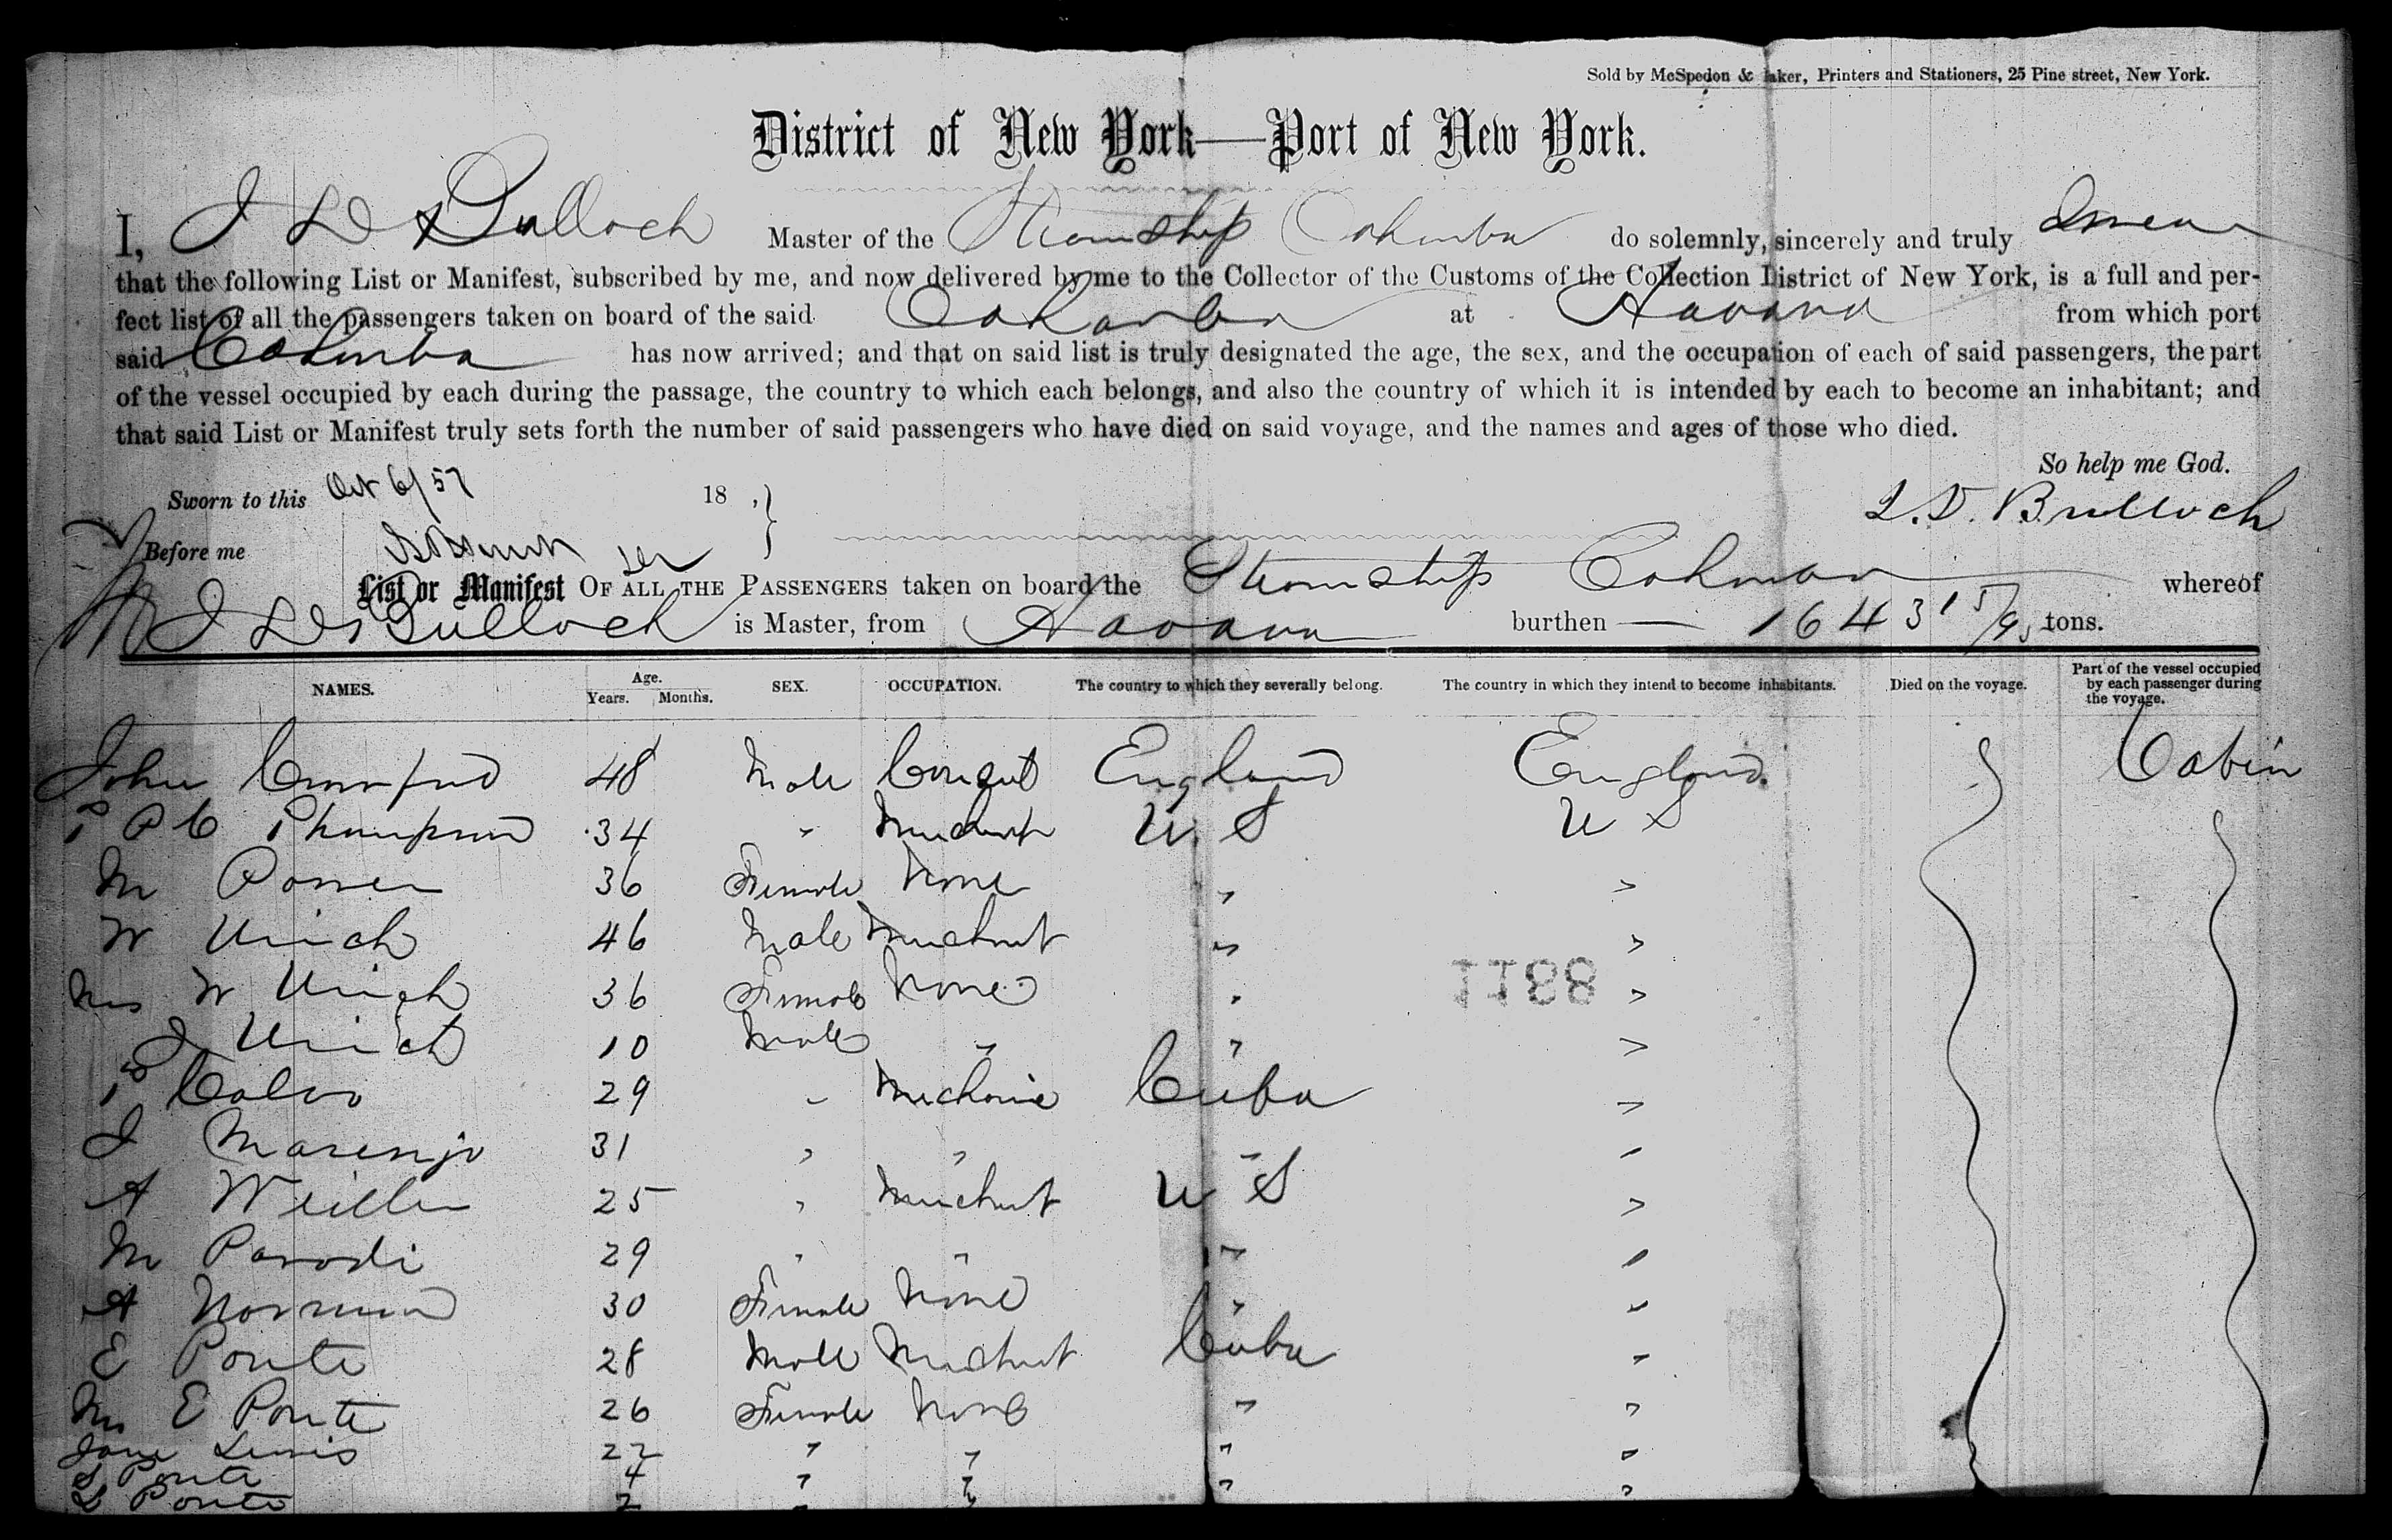 Sold by McSpedon & Baker, Printers and Stationers, 25 Pine street, New York.
District of New York—Port of New York.
I, J D Bulloch Master of the Steamship Cahawba do solemnly, sincerely and truly swear
that the following List or Manifest, subscribed by me, and now delivered by me to the Collector of the Customs of the Collection District of New York, is a full and per-
fect list of all the passengers taken on board of the said Cahawba at Havana from which port
said Cahawba has now arrived; and that on said list is truly designated the age, the sex, and the occupation of each of said passengers, the part
of the vessel occupied by each during the passage, the country to which each belongs, and also the country of which it is intended by each to become an inhabitant; and
that said List or Manifest truly sets forth the number of said passengers who have died on said voyage, and the names and ages of those who died.
So help me God.
Sworn to this Oct 6/57 18 ,
J. D. Bulloch
Before me
List or Manifest OF ALL THE PASSENGERS taken on board the Steamship Cahawba whereof
J D Bulloch is Master, from Havana burthen 1643 15/95 tons.
NAMES. Age. Years. Months. SEX. OCCUPATION. The country to which they severally belong. The country in which they intend to become inhabitants. Died on the voyage. Part of the vessel occupied by each passenger during the voyage.
John Crawford 48 Male Consul England England Cabin
Thompson 34 " Merchant U. S U S
M 36 Female None " "
W Ulrich 46 Male Merchant " "
1188
Mrs W Ulrich 36 Female None " "
J Ulrich 10 Male " " "
Calvo 29 " Mechanic Cuba "
J 31 " " " "
A Weiller 25 " Merchant U S "
M Parodi 29 " " " "
A Norman 30 Female None " "
E Ponte 28 Male Merchant Cuba "
Mrs E Ponte 26 Female None " "
Jane Lewis 22 " " " "
S Ponte 4 " " " "
L Ponte 2 " "